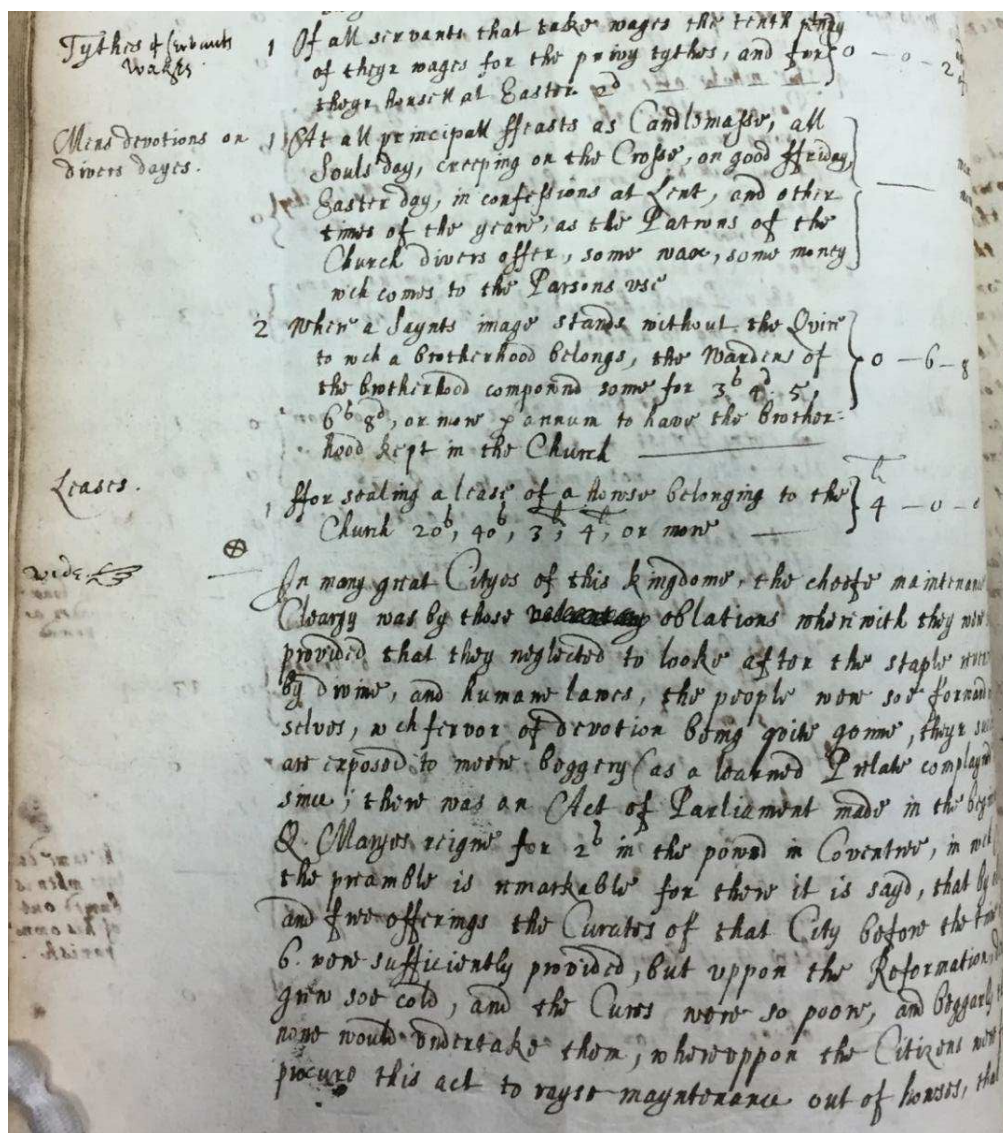 Tythes of Servants
Wages
1 Of all servants that take wages the tenth penny
of theyr wages for the privy tythes, and for
theyr howsell at Easter 2d
0 - 0 - 2
Mens devotions on
divers dayes.
1 At all principall ffeasts as Candlemasse, all
Souls day, creeping on the Crosse, on good ffriday,
Easter day, in confessions at Lent, and other
times of the yeare, as the Patrons of the
Church divers offer, some wax, some money
wch comes to the Parsons vse
2 Where a Saynts image stands without the Qvire
to wch a brotherhood belongs, the Wardens of
the brotherhood compownd some for 3s 4d. 5,
6s 8d, or more p annum to have the brother:
hood kept in the Church
0 - 6 - 8
Leases.
1 ffor sealing a lease of a howse belonging to the
Church 20s, 40s, 3l, 4l, or more
4 - 0 - 0
vide
In many great Cityes of this kingdome, the cheefe maintenanc
Cleargy was by those oblations wherwith they were
provided that they neglected to looke after the staple
by divine, and humane lawes, the people were soe forward
selves, wch fervor of devotion being quite gonne, theyr
are exposed to meere beggery (as a learned Prelate complayned
since; there was an Act of Parliament made in the
Q. Maryes reigne for 2s in the pownd in Coventree, in wch
the preamble is remarkable for there it is sayd, that by
and free offerings the Curates of that City before the
6. were sufficiently provided, but vppon the Reformation
grew soe cold, and the Cures were so poore, and beggarly
none would vndertake them, wherevppon the Citizens were
procure this act to rayse mayntenance out of howses, that